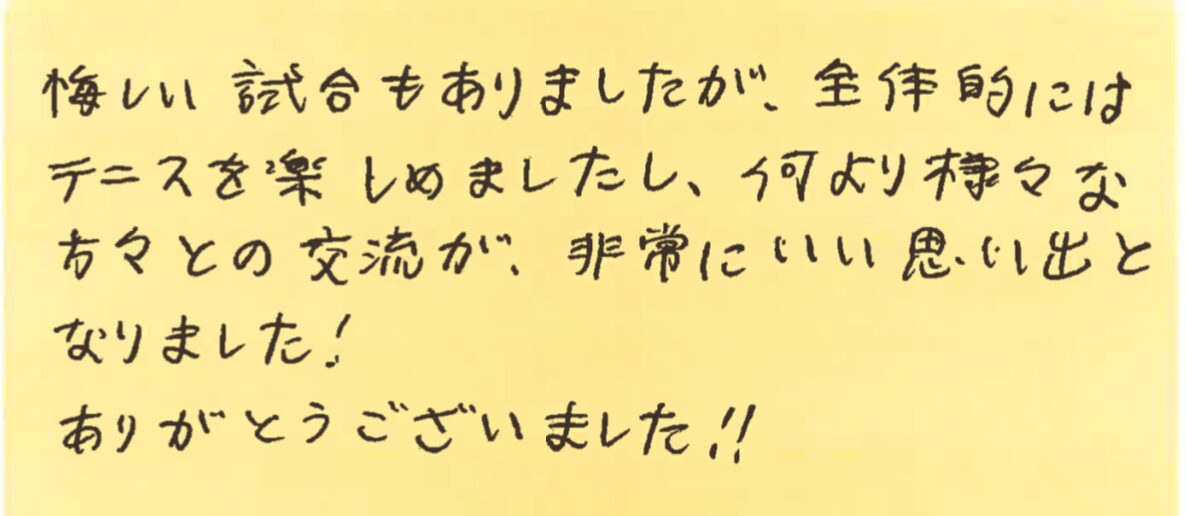 悔しい試合もありましたが、全体的には
テニスを楽しめましたし、何より様々な
方々との交流が、非常にいい思い出と
なりました!
ありがとうございました!!